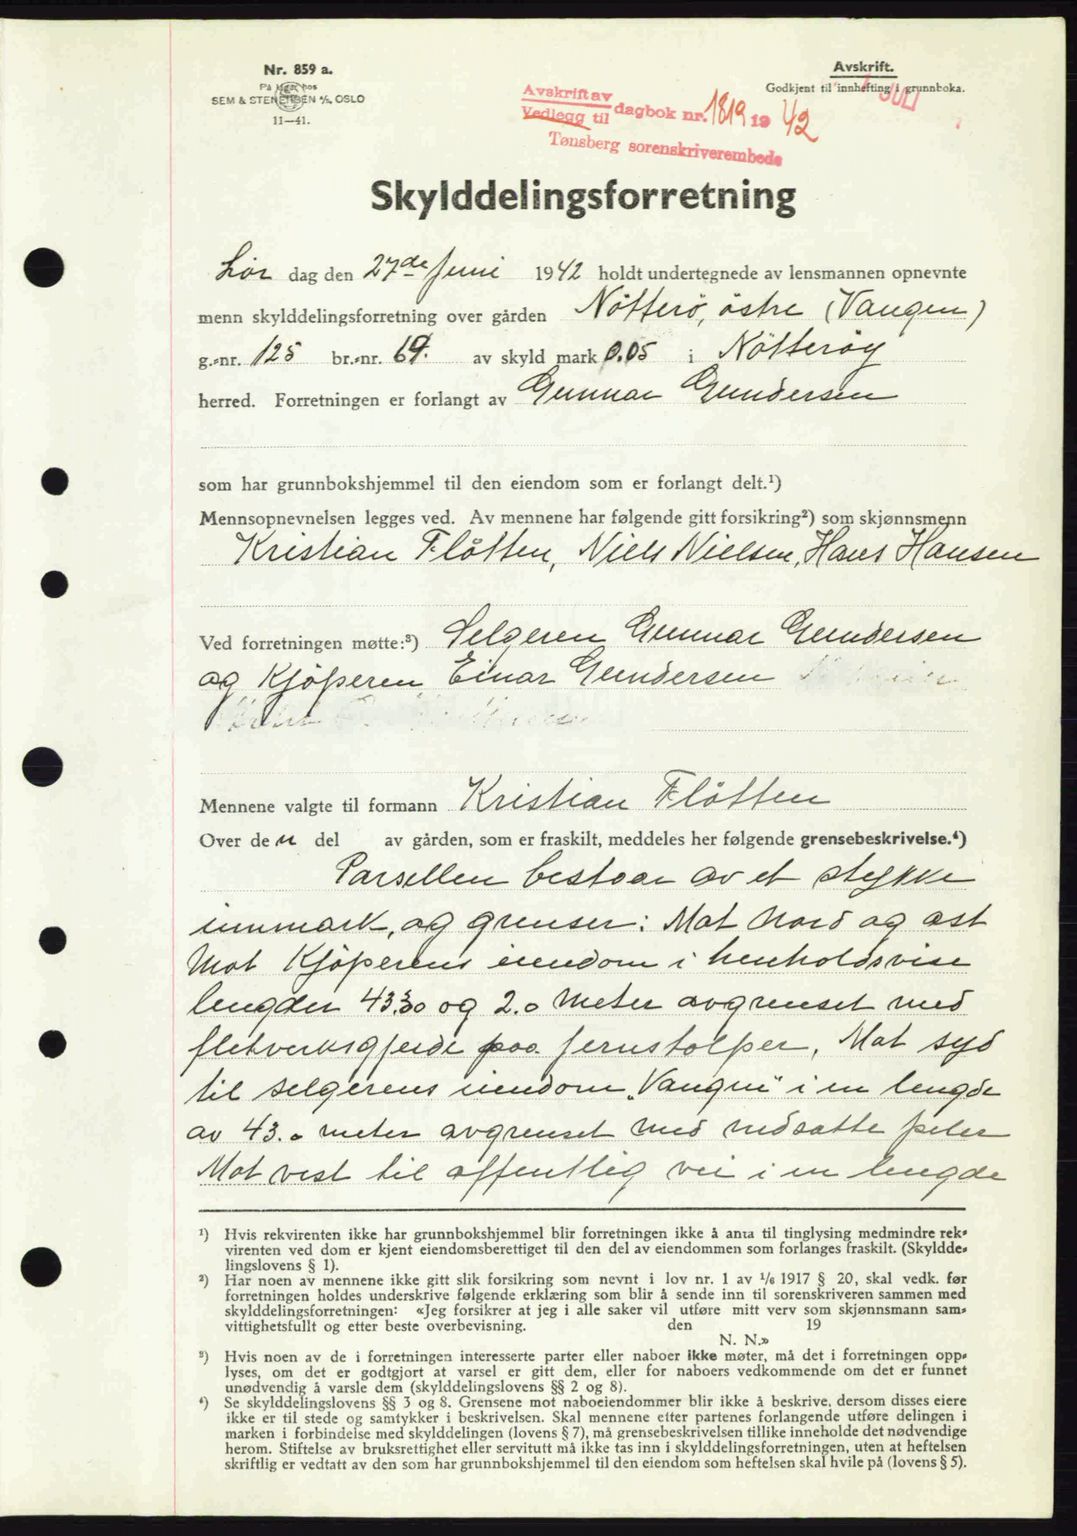 Nr. 859 a.
På lager hos
SEM & STENERSEN A/S, OSLO
11—41.
Avskrift.
Godkjent til innhefting i grunnboka.
JULI
Avskrift av
Vedlegg til dagbok nr. 1819 19 42
Tønsberg sorenskriverembede
Skylddelingsforretning
Lør dag den 27de Juni 1942 holdt undertegnede av lensmannen opnevnte
menn skylddelingsforretning over gården Nötterö, östre (Vangen)
g.-nr. 125 br.-nr. 69. av skyld mark 0.05 i Nötteröy
herred. Forretningen er forlangt av Gunnar Gundersen
som har grunnbokshjemmel til den eiendom som er forlangt delt.¹)
Mennsopnevnelsen legges ved. Av mennene har følgende gitt forsikring²) som skjønnsmenn
Kristian Flåtten, Niels Nielsen, Hans Hansen
Ved forretningen møtte:³) Selgeren Gunnar Gundersen
og Kjöperen Einar Gundersen
Mennene valgte til formann Kristian Flåtten
Over den del av gården, som er fraskilt, meddeles her følgende grensebeskrivelse.⁴)
Parsellen bestaar av et stykke
innmark, og grenser: Mot Nord og øst
Mot Kjöperens eiendom i henholdsvise
lengder 43.30 og 2.0 meter avgrenset med
fletverksgjerde paa jernstolper, Mot syd
til selgerens eiendom „Vangen" i en lengde
av 43.0 meter avgrenset med nedsatte peler
Mot vest til offentlig vei i en lengde
¹) Hvis rekvirenten ikke har grunnbokshjemmel blir forretningen ikke å anta til tinglysing medmindre rek-
virenten ved dom er kjent eiendomsberettiget til den del av eiendommen som forlanges fraskilt. (Skyldde-
lingslovens § 1).
²) Har noen av mennene ikke gitt slik forsikring som nevnt i lov nr. 1 av 1/6 1917 § 20, skal vedk. før
forretningen holdes underskrive følgende erklæring som blir å sende inn til sorenskriveren sammen med
skylddelingsforretningen: «Jeg forsikrer at jeg i alle saker vil utføre mitt verv som skjønnsmann sam-
vittighetsfullt og etter beste overbevisning. den 19
N. N.»
³) Hvis noen av de i forretningen interesserte parter eller naboer ikke møter, må det i forretningen opp-
lyses, om det er godtgjort at varsel er gitt dem, eller for naboers vedkommende om det er funnet
unødvendig å varsle dem (skylddelingslovens §§ 2 og 8).
⁴) Se skylddelingslovens §§ 3 og 8. Grensene mot naboeiendommer blir ikke å beskrive, dersom disses eiere
ikke er til stede og samtykker i beskrivelsen. Skal mennene etter partenes forlangende utføre delingen i
marken i forbindelse med skylddelingen (lovens § 7), må grensebeskrivelsen tillike inneholde det nødvendige
herom. Stiftelse av bruksrettighet eller servitutt må ikke tas inn i skylddelingsforretningen, uten at heftelsen
skriftlig er vedtatt av den som har grunnbokshjemmel til den eiendom som heftelsen skal hvile på (lovens § 5).